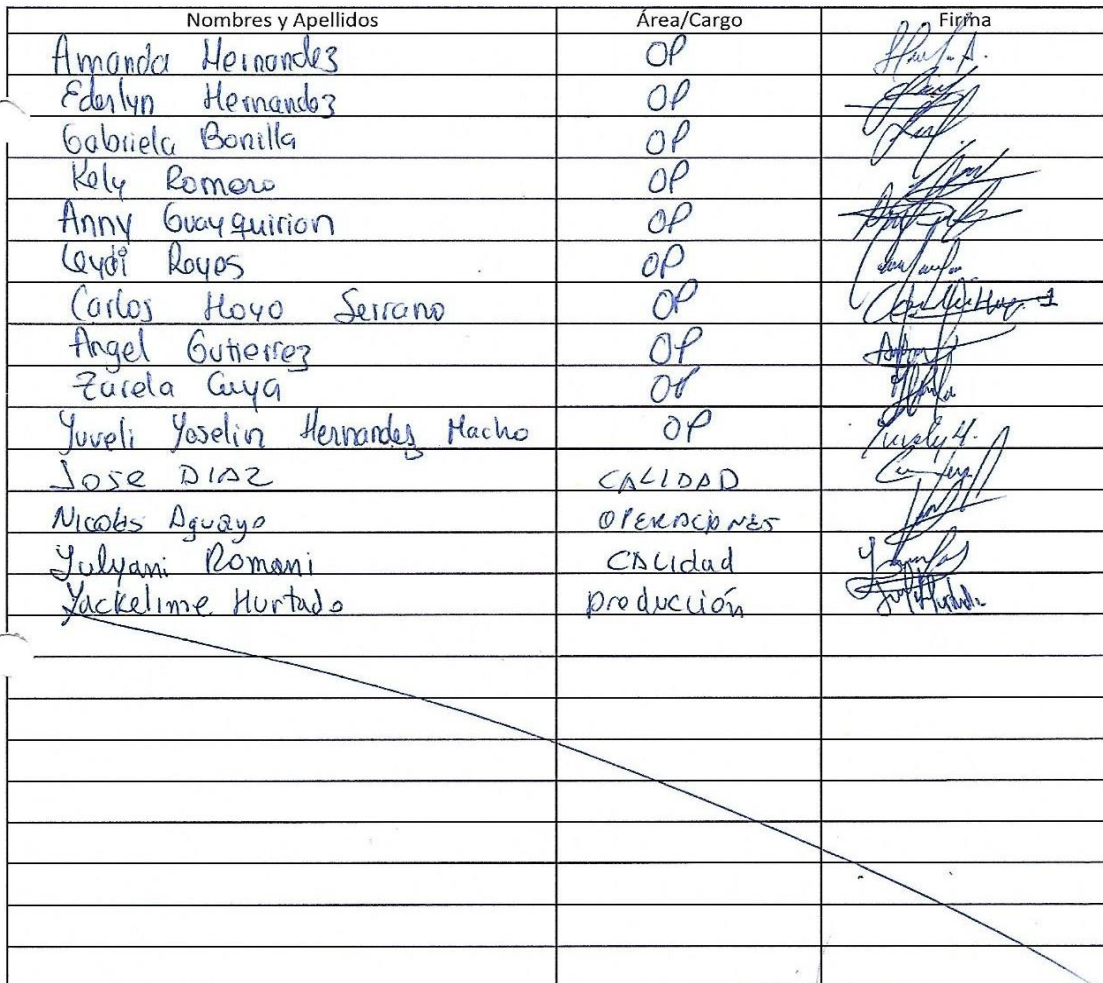 Nombres y Apellidos Área/Cargo Firma
Amanda Hernandez OP
Ederlyn Hernandez OP
Gabriela Bonilla OP
Kely Romero OP
Anny Guayquirian OP
Leydi Reyes OP
Carlos Hoyo Serrano OP
Angel Gutierrez OP
Zarela Cuya OP
Yuveli Yoselin Hernandez Macho OP
Jose DIAZ CALIDAD
Nicolás Aguayo OPERACIONES
Yulyani Romani CALidad
Yackelinne Hurtado producción